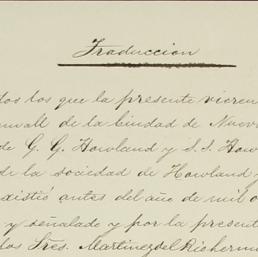 Traduccion
dos los que la presente vieren
de la Ciudad de Nueva
de G. G. Howland y S. S. How
de la sociedad de Howland y
existió antes del año de mil o
y señalado y por la presente
los Sres. Martinez del Rio herm